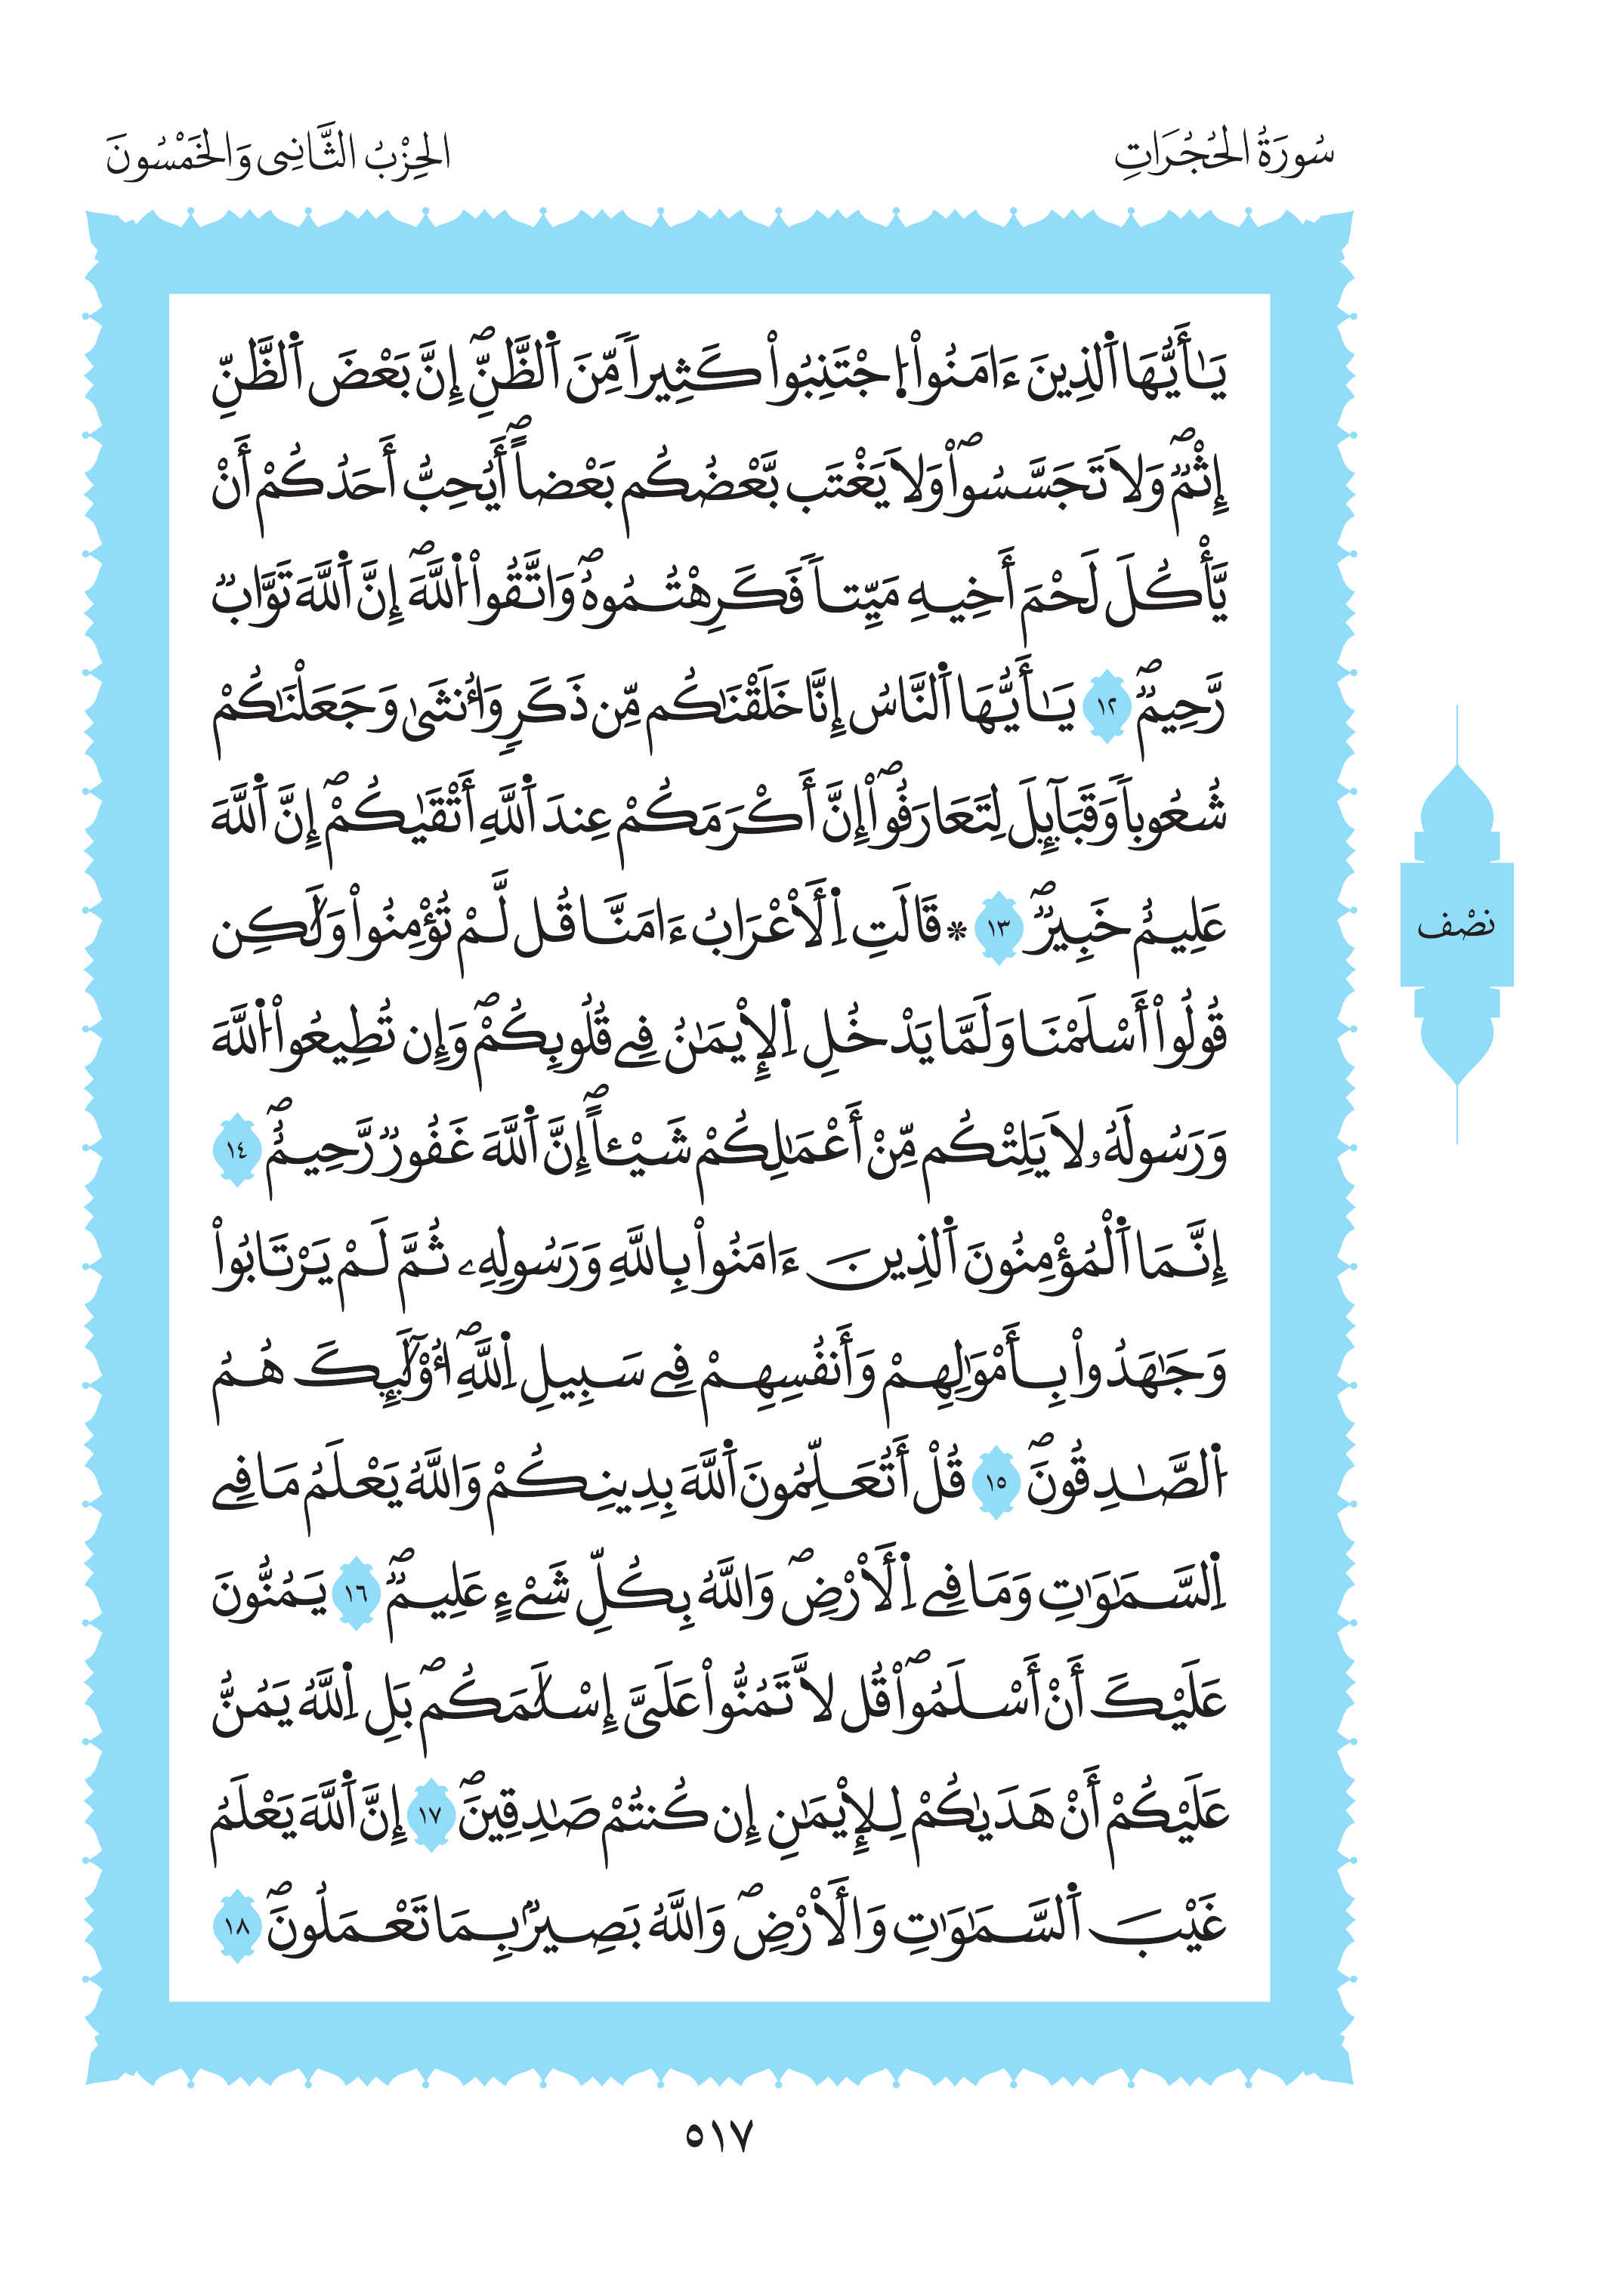 سُورَةُ الحُجُرَاتِ
الحِزْبُ الثَّانِى وَالخَمْسُونَ
يَـٰٓأَيُّهَا اَ۬لذِينَ ءَامَنُواْ اُ۪جْتَنِبُواْ كَثِيراٗ مِّنَ اَ۬لظَّنِّۖ إِنَّ بَعْضَ اَ۬لظَّنِّ
إِثْمٞۖ وَلَا تَجَسَّسُواْۖ وَلَا يَغْتَب بَّعْضُكُم بَعْضاًۖ أَيُحِبُّ أَحَدُكُمْ أَنْ
يَّأْكُلَ لَحْمَ أَخِيهِ مَيِّتاٗ فَكَرِهْتُمُوهُۖ وَاتَّقُواْ اُ۬للَّهَۖ إِنَّ اَ۬للَّهَ تَوَّابٞ
رَّحِيمٞۖ ١٢ يَـٰٓأَيُّهَا اَ۬لنَّاسُ إِنَّا خَلَقْنَٰكُم مِّن ذَكَرٖ وَأُنثَىٰ وَجَعَلْنَٰكُمْ
شُعُوباٗ وَقَبَآئِلَ لِتَعَارَفُواْۖ إِنَّ أَكْرَمَكُمْ عِندَ اَ۬للَّهِ أَتْقَيٰكُمْۖ إِنَّ اَ۬للَّهَ
عَلِيمٌ خَبِيرٞۖ ١٣ ۞ قَالَتِ اِ۬لَأَعْرَابُ ءَامَنَّا قُل لَّمْ تُؤْمِنُواْ وَلَٰكِن
قُولُواْ أَسْلَمْنَا وَلَمَّا يَدْخُلِ اِ۬لِايمَٰنُ فِے قُلُوبِكُمْۖ وَإِن تُطِيعُواْ اُ۬للَّهَ
وَرَسُولَهُۥ لَا يَلِتْكُم مِّنْ أَعْمَٰلِكُمْ شَيْـٔاًۖ إِنَّ اَ۬للَّهَ غَفُورٞ رَّحِيمٌۖ ١٤
إِنَّمَا اَ۬لْمُؤْمِنُونَ اَ۬لذِينَ ءَامَنُواْ بِاللَّهِ وَرَسُولِهِۦ ثُمَّ لَمْ يَرْتَابُواْ
وَجَٰهَدُواْ بِأَمْوَٰلِهِمْ وَأَنفُسِهِمْ فِے سَبِيلِ اِ۬للَّهِۖ أُوْلَٰٓئِكَ هُمُ
اُ۬لصَّٰدِقُونَۖ ١٥ قُلْ أَتُعَلِّمُونَ اَ۬للَّهَ بِدِينِكُمْ وَاللَّهُ يَعْلَمُ مَا فِے
اِ۬لسَّمَٰوَٰتِ وَمَا فِے اِ۬لَأَرْضِۖ وَاللَّهُ بِكُلِّ شَےْءٍ عَلِيمٞۖ ١٦ يَمُنُّونَ
عَلَيْكَ أَنْ أَسْلَمُواْۖ قُل لَّا تَمُنُّواْ عَلَىَّ إِسْلَٰمَكُمۖ بَلِ اِ۬للَّهُ يَمُنُّ
عَلَيْكُمْ أَنْ هَدَيٰكُمْ لِلْإِيمَٰنِ إِن كُنتُمْ صَٰدِقِينَۖ ١٧ إِنَّ اَ۬للَّهَ يَعْلَمُ
غَيْبَ اَ۬لسَّمَٰوَٰتِ وَالَأَرْضِۖ وَاللَّهُ بَصِيرُۢ بِمَا تَعْمَلُونَۖ ١٨
نصْف
٥١٧